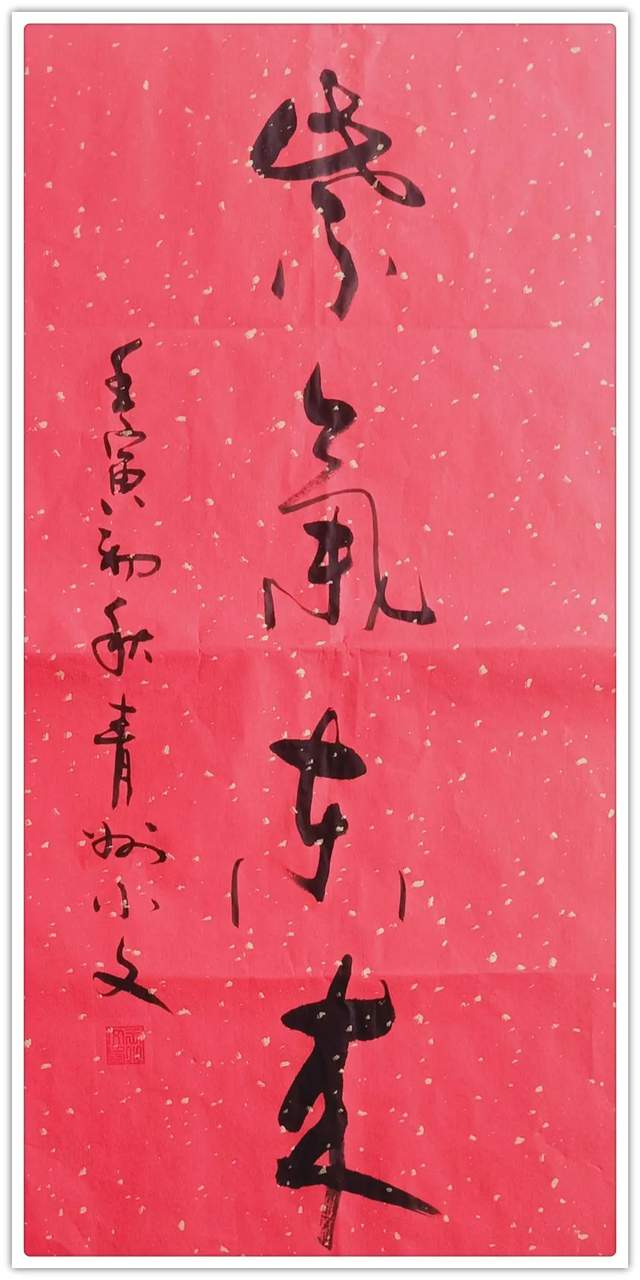 紫氣东来
壬寅初秋青州小文